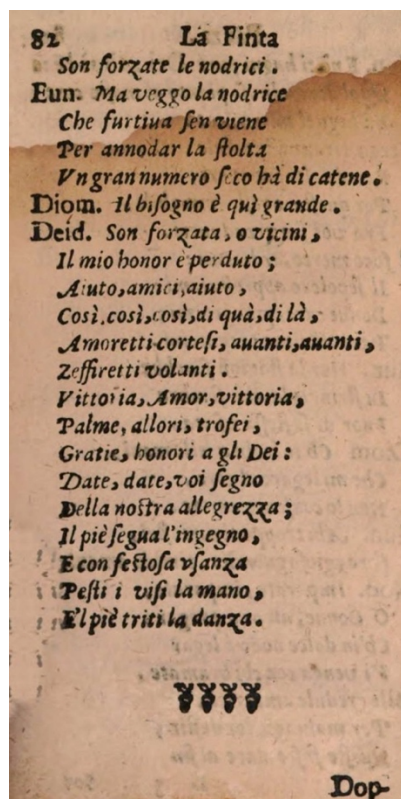 82 La Finta
Son forzate le nodrici.
Eun. Ma veggo la nodrice
Che furtiua ſen viene
Per annodar la ſtolta
Vn gran numero ſeco hà di catene.
Diom. Il biſogno è quì grande.
Deid. Son forzata, o vicini,
Il mio honor è perduto;
Aiuto, amici, aiuto,
Così, così, così, di quà, di là,
Amoretti corteſi, auanti, auanti,
Zeffiretti volanti.
Vittoria, Amor, vittoria,
Palme, allori, trofei,
Gratie, honori a gli Dei:
Date, date, voi ſegno
Della noſtra allegrezza;
Il piè ſegua l'ingegno,
E con feſtoſa vſanza
Peſti i viſi la mano,
E'l piè triti la danza.
Dop-